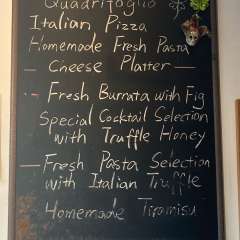 Quadrifoglio
Italian Pizza
Homemade Fresh Pasta
— Cheese Platter —
Fresh Burrata with Fig
Special Cocktail Selection
with Truffle Honey
— Fresh Pasta Selection
with Italian Truffle
Homemade Tiramisu